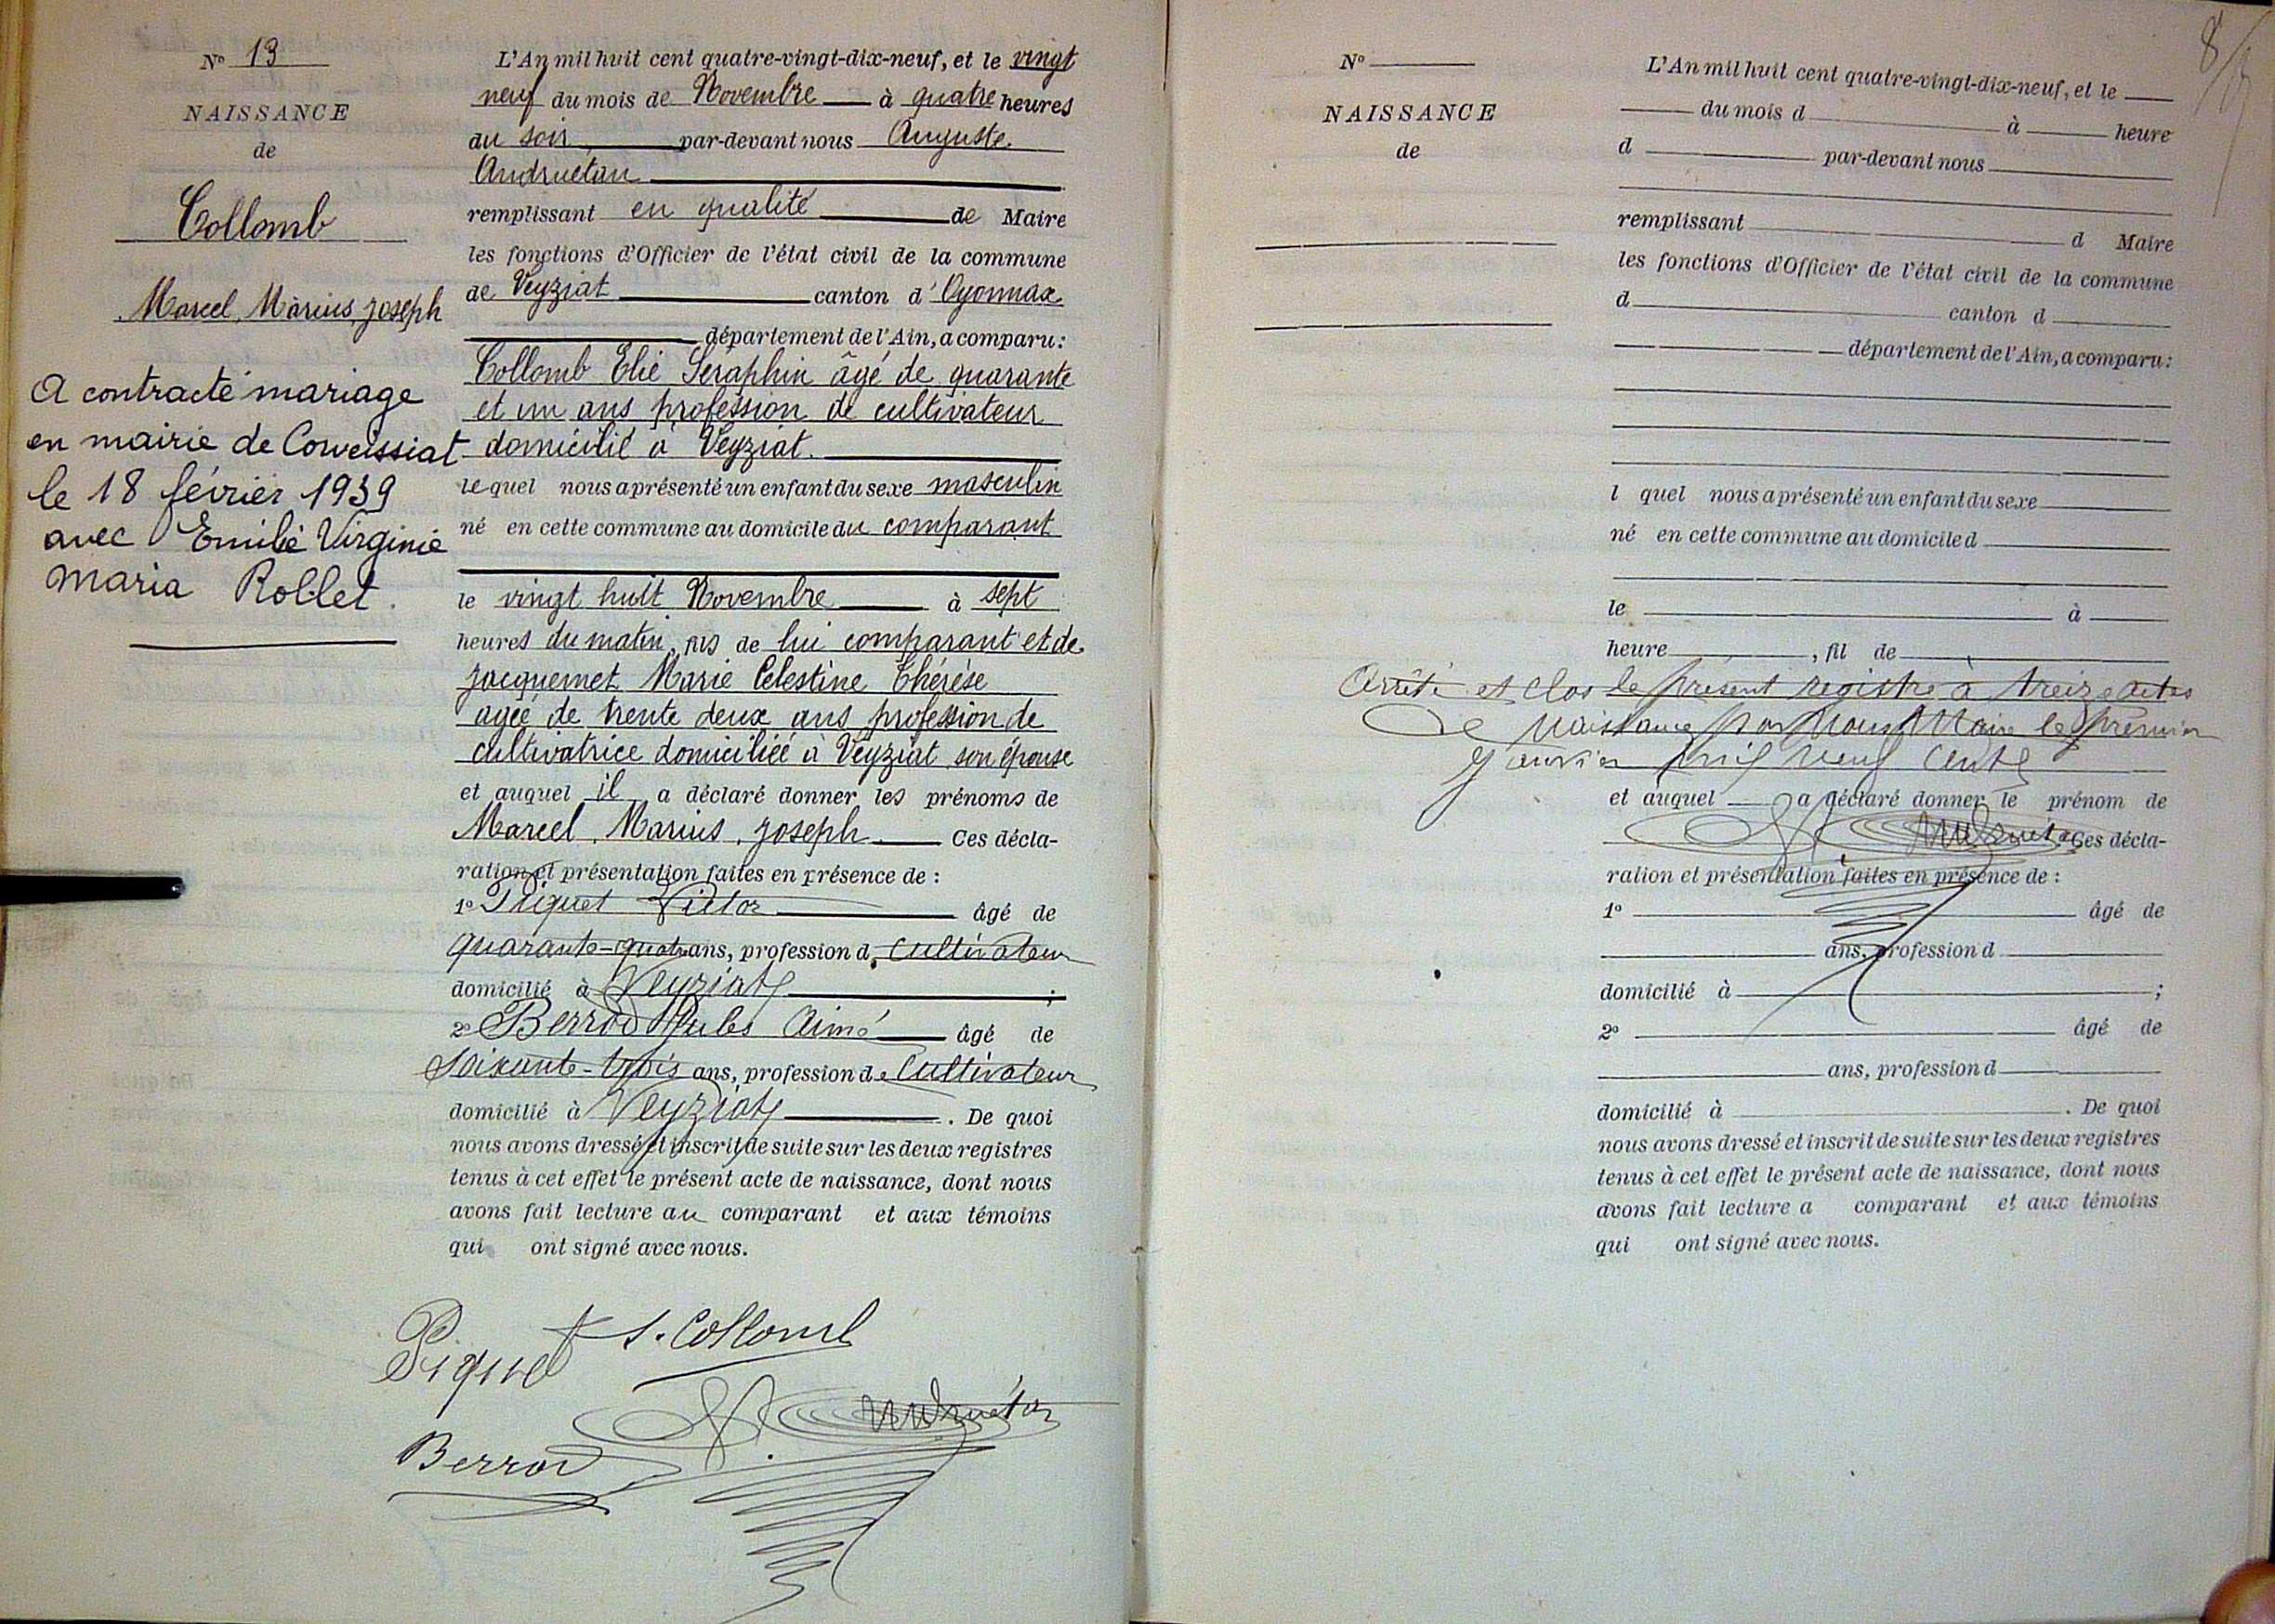 Nº 13
NAISSANCE
de
Collomb
Marcel, Marius, Joseph
A contracté mariage
en mairie de Corveissiat
le 18 février 1939
avec Emilie Virginie
Maria Rollet.
L'An mil huit cent quatre-vingt-dix-neuf, et le vingt
neuf du mois de Novembre à quatre heures
du soir, par-devant nous Auguste
Andruétan
remplissant en qualité de Maire
les fonctions d'Officier de l'état civil de la commune
de Veyziat canton d'Oyonnax
département de l'Ain, a comparu :
Collomb Elie Séraphin âgé de quarante
et un ans profession de cultivateur
domicilié à Veyziat.
lequel nous a présenté un enfant du sexe masculin
né en cette commune au domicile du comparant
le vingt huit Novembre à sept
heures du matin, fils de lui comparant et de
Jacquemet Marie Célestine Thérèse
agée de trente deux ans profession de
cultivatrice domiciliée à Veyziat son épouse
et auquel il a déclaré donner les prénoms de
Marcel, Marius, Joseph. Ces décla-
ration et présentation faites en présence de :
1º Piquet Victor âgé de
quarante-quatre ans, profession d. Cultivateur
domicilié à Veyziat ;
2º Berrod Jules Aimé âgé de
Soixante-trois ans, profession de Cultivateur
domicilié à Veyziat. De quoi
nous avons dressé et inscrit de suite sur les deux registres
tenus à cet effet le présent acte de naissance, dont nous
avons fait lecture au comparant et aux témoins
qui ont signé avec nous.
Piquet S. Collomb
Andruétan
Berrod
8
Nº
NAISSANCE
de
L'An mil huit cent quatre-vingt-dix-neuf, et le
du mois d à heure
d par-devant nous
remplissant d Maire
les fonctions d'Officier de l'état civil de la commune
d canton d
département de l'Ain, a comparu :
l quel nous a présenté un enfant du sexe
né en cette commune au domicile d
le à
heure , fil de
Arrêté et clos le présent registre à treize actes
de naissance par Nous Maire le premier
Janvier mil neuf cents
et auquel a déclaré donner le prénom de
Andruétan Ces décla-
ration et présentation faites en présence de :
1º âgé de
ans, profession d
domicilié à ;
2º âgé de
ans, profession d
domicilié à . De quoi
nous avons dressé et inscrit de suite sur les deux registres
tenus à cet effet le présent acte de naissance, dont nous
avons fait lecture a comparant et aux témoins
qui ont signé avec nous.